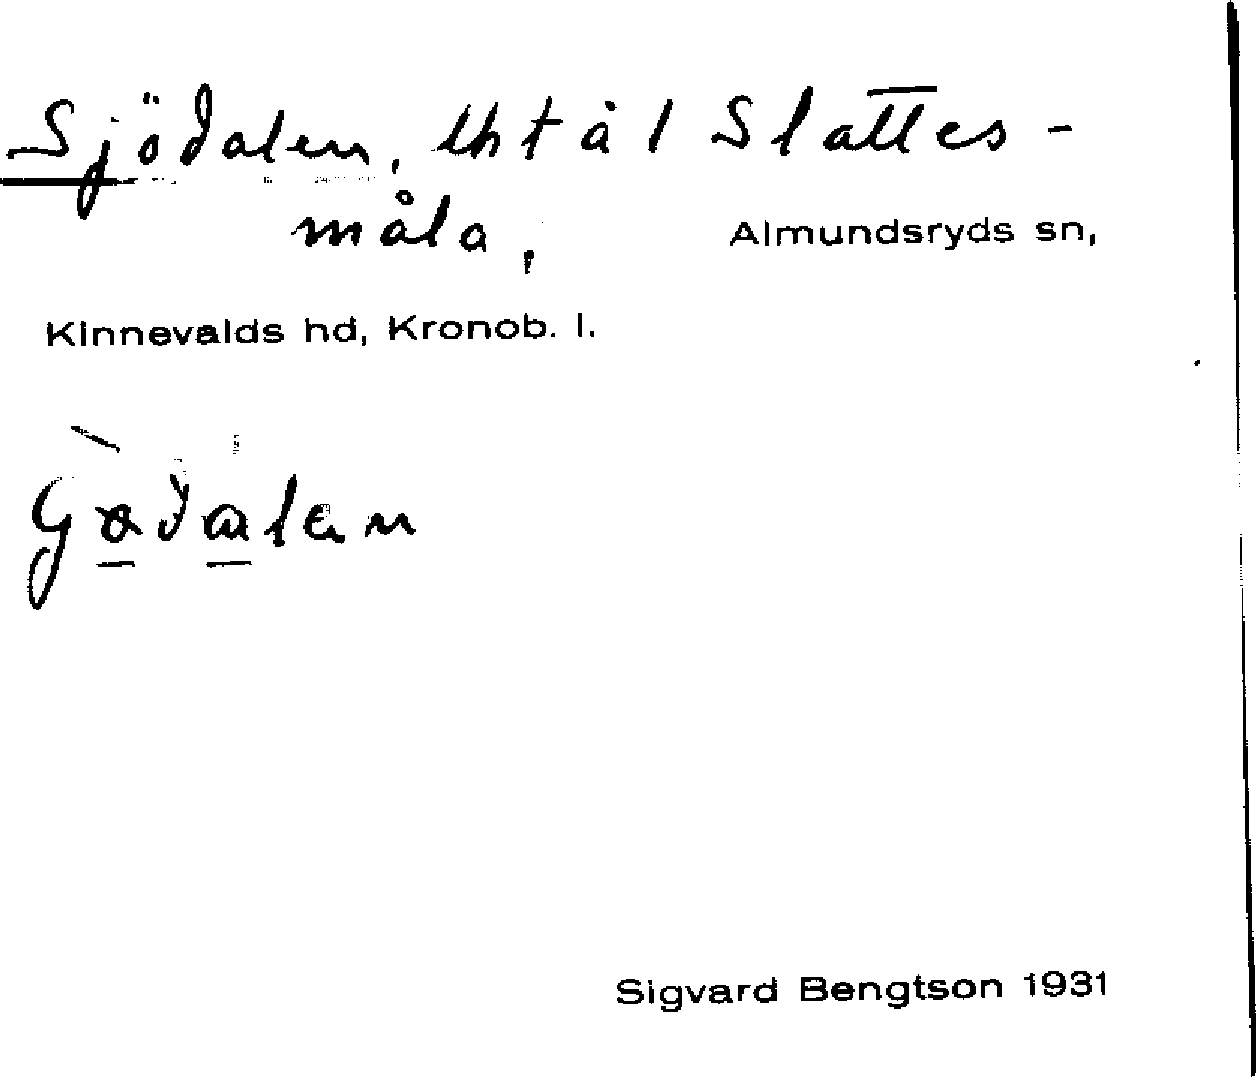 Sjödalen, lht å l Slattes-
måla, Almundsryds sn,
Kinnevalds hd, Kronob. l.
Sigvard Bengtson 1931